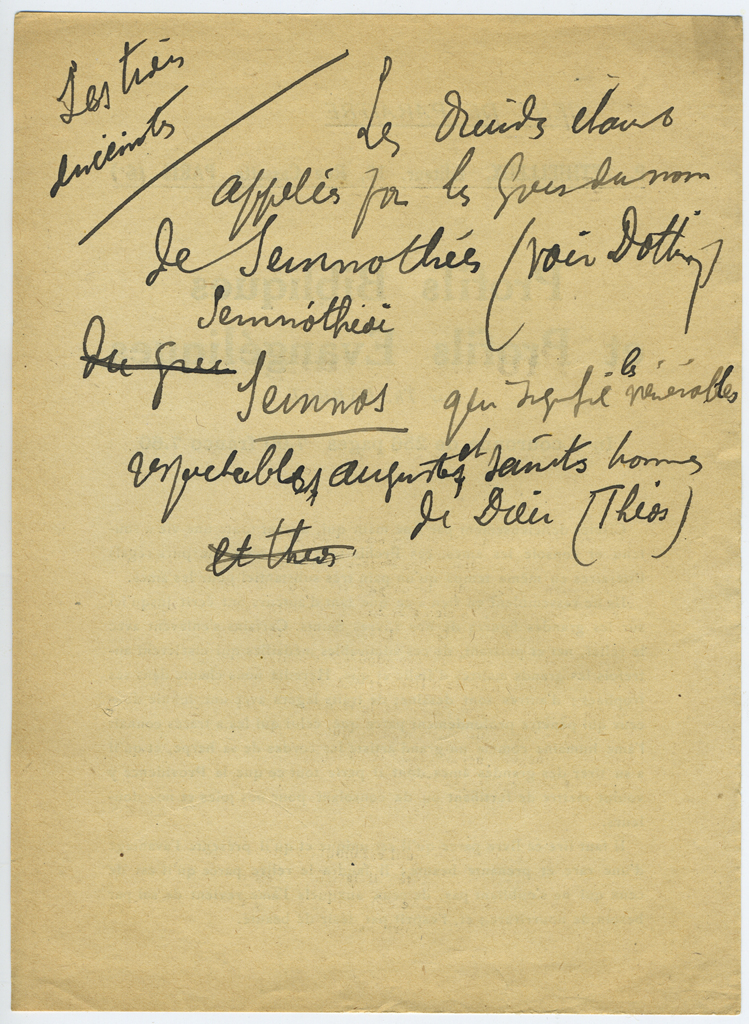 Les trois
enceintes
Les druides étaient
appelés par les Grecs du nom
de Semnothées (voir Dottin)
Semnothéoi
du grec
Semnos qui signifie les vénérables
respectables, augustes, et saints hommes
de Dieu (Théos)
et theos